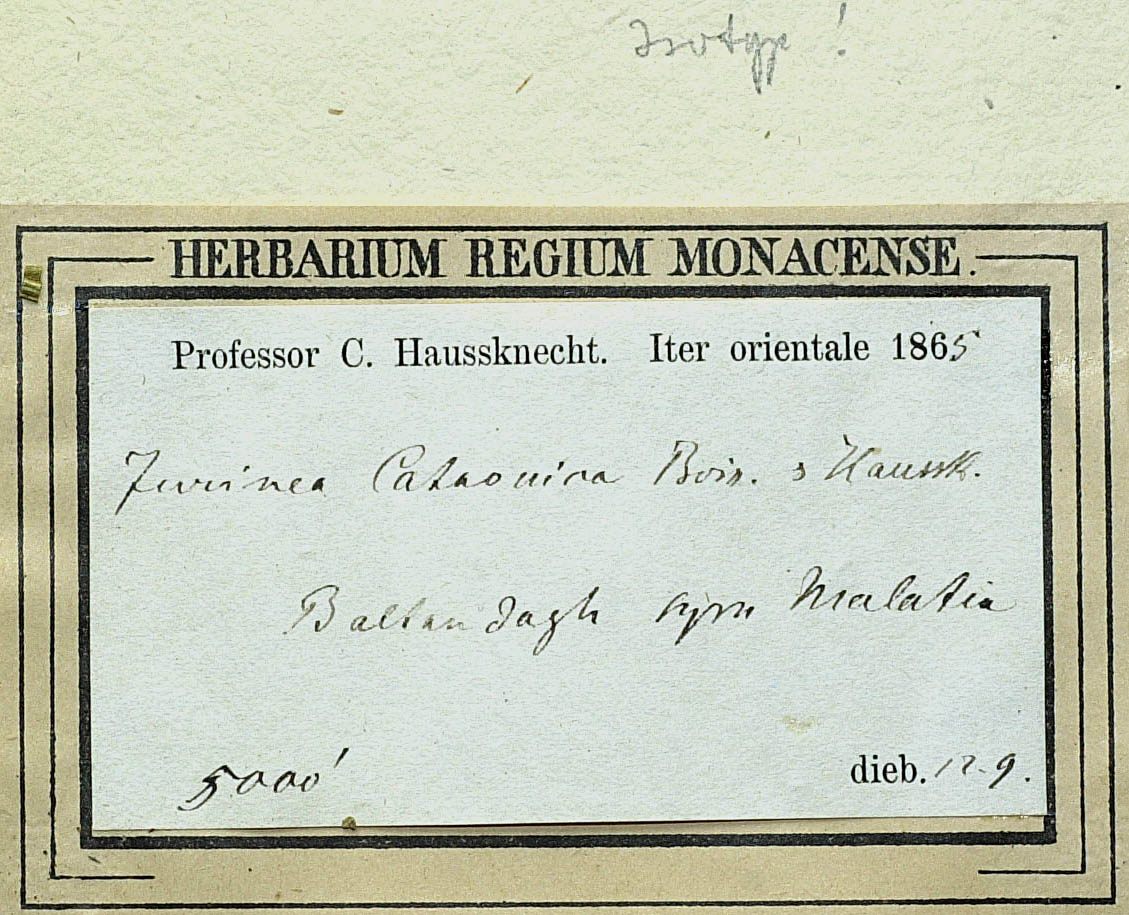 Isotyp !
HERBARIUM REGIUM MONACENSE.
Professor C. Haussknecht. Iter orientale 1865
Jurinea Cataonica Boiss. & Haussk.
dagh Malatia
5000'
dieb. 12. 9.